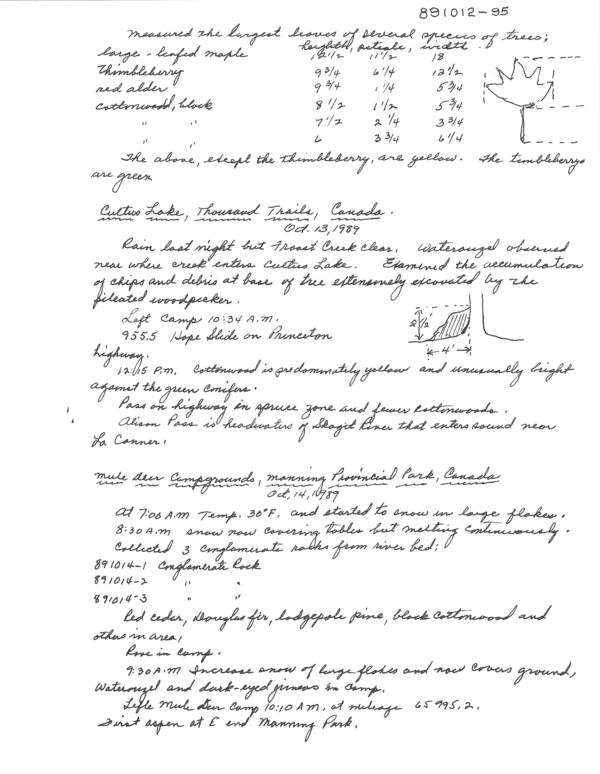 891012-95
measured the largest leaves of several species of trees;
heighth, petiole, width.
large-leafed maple 12 1/2 11 1/2 18
Thimbleberry 9 3/4 6 1/4 12 1/2
red alder 9 3/4 1 1/4 5 3/4
cottonwood, black 8 1/2 1 1/2 5 3/4
" " 7 1/2 2 1/4 3 3/4
" " 6 3 3/4 6 1/4
The above, except the thimbleberry, are yellow. The timbleberrys
are green
Cultus Lake, Thousand Trails, Canada.
Oct. 13, 1989
Rain last night but Froast Creek clear. Waterouzel observed
near where creek enters Cultus Lake. Examined the accumulation
of chips and debris at base of tree extensively excavated by the
pileated woodpecker.
2 1/2'
4'
Left Camp 10:34 A.M.
955.5 Hope Slide on Princeton
highway.
12:15 P.M. Cottonwood is predominately yellow and unusually bright
against the green conifers.
Pass on highway in spruce zone and fewer cottonwoods.
Alison Pass is headwaters of Skagit River that enters sound near
La Conner.
Mule Deer Campgrounds, Manning Provincial Park, Canada
Oct. 14, 1989
At 7:00 A.M Temp. 30°F. and started to snow in large flakes.
8:30 A.M snow now covering tables but melting continuously.
Collected 3 conglomerate rocks from river bed:
891014-1 Conglomerate Rock
891014-2 " "
891014-3 " "
Red cedar, Douglas fir, lodgepole pine, black cottonwood and
others in area,
Rose in camp.
9:30 A.M Increase snow of large flakes and now covers ground,
Waterouzel and dark-eyed juncos in camp.
Lefle Mule Deer Camp 10:10 A.M. at mileage 65995.2.
First aspen at E end Manning Park.